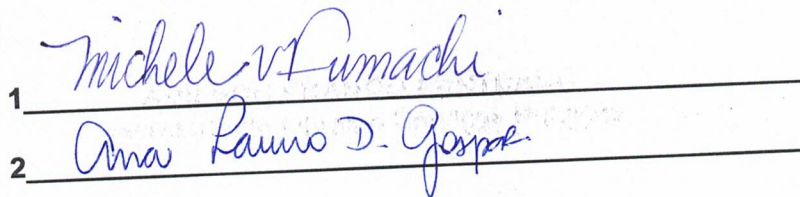 1 Michele V. Fumachi
2 Ana Laura D. Gaspar